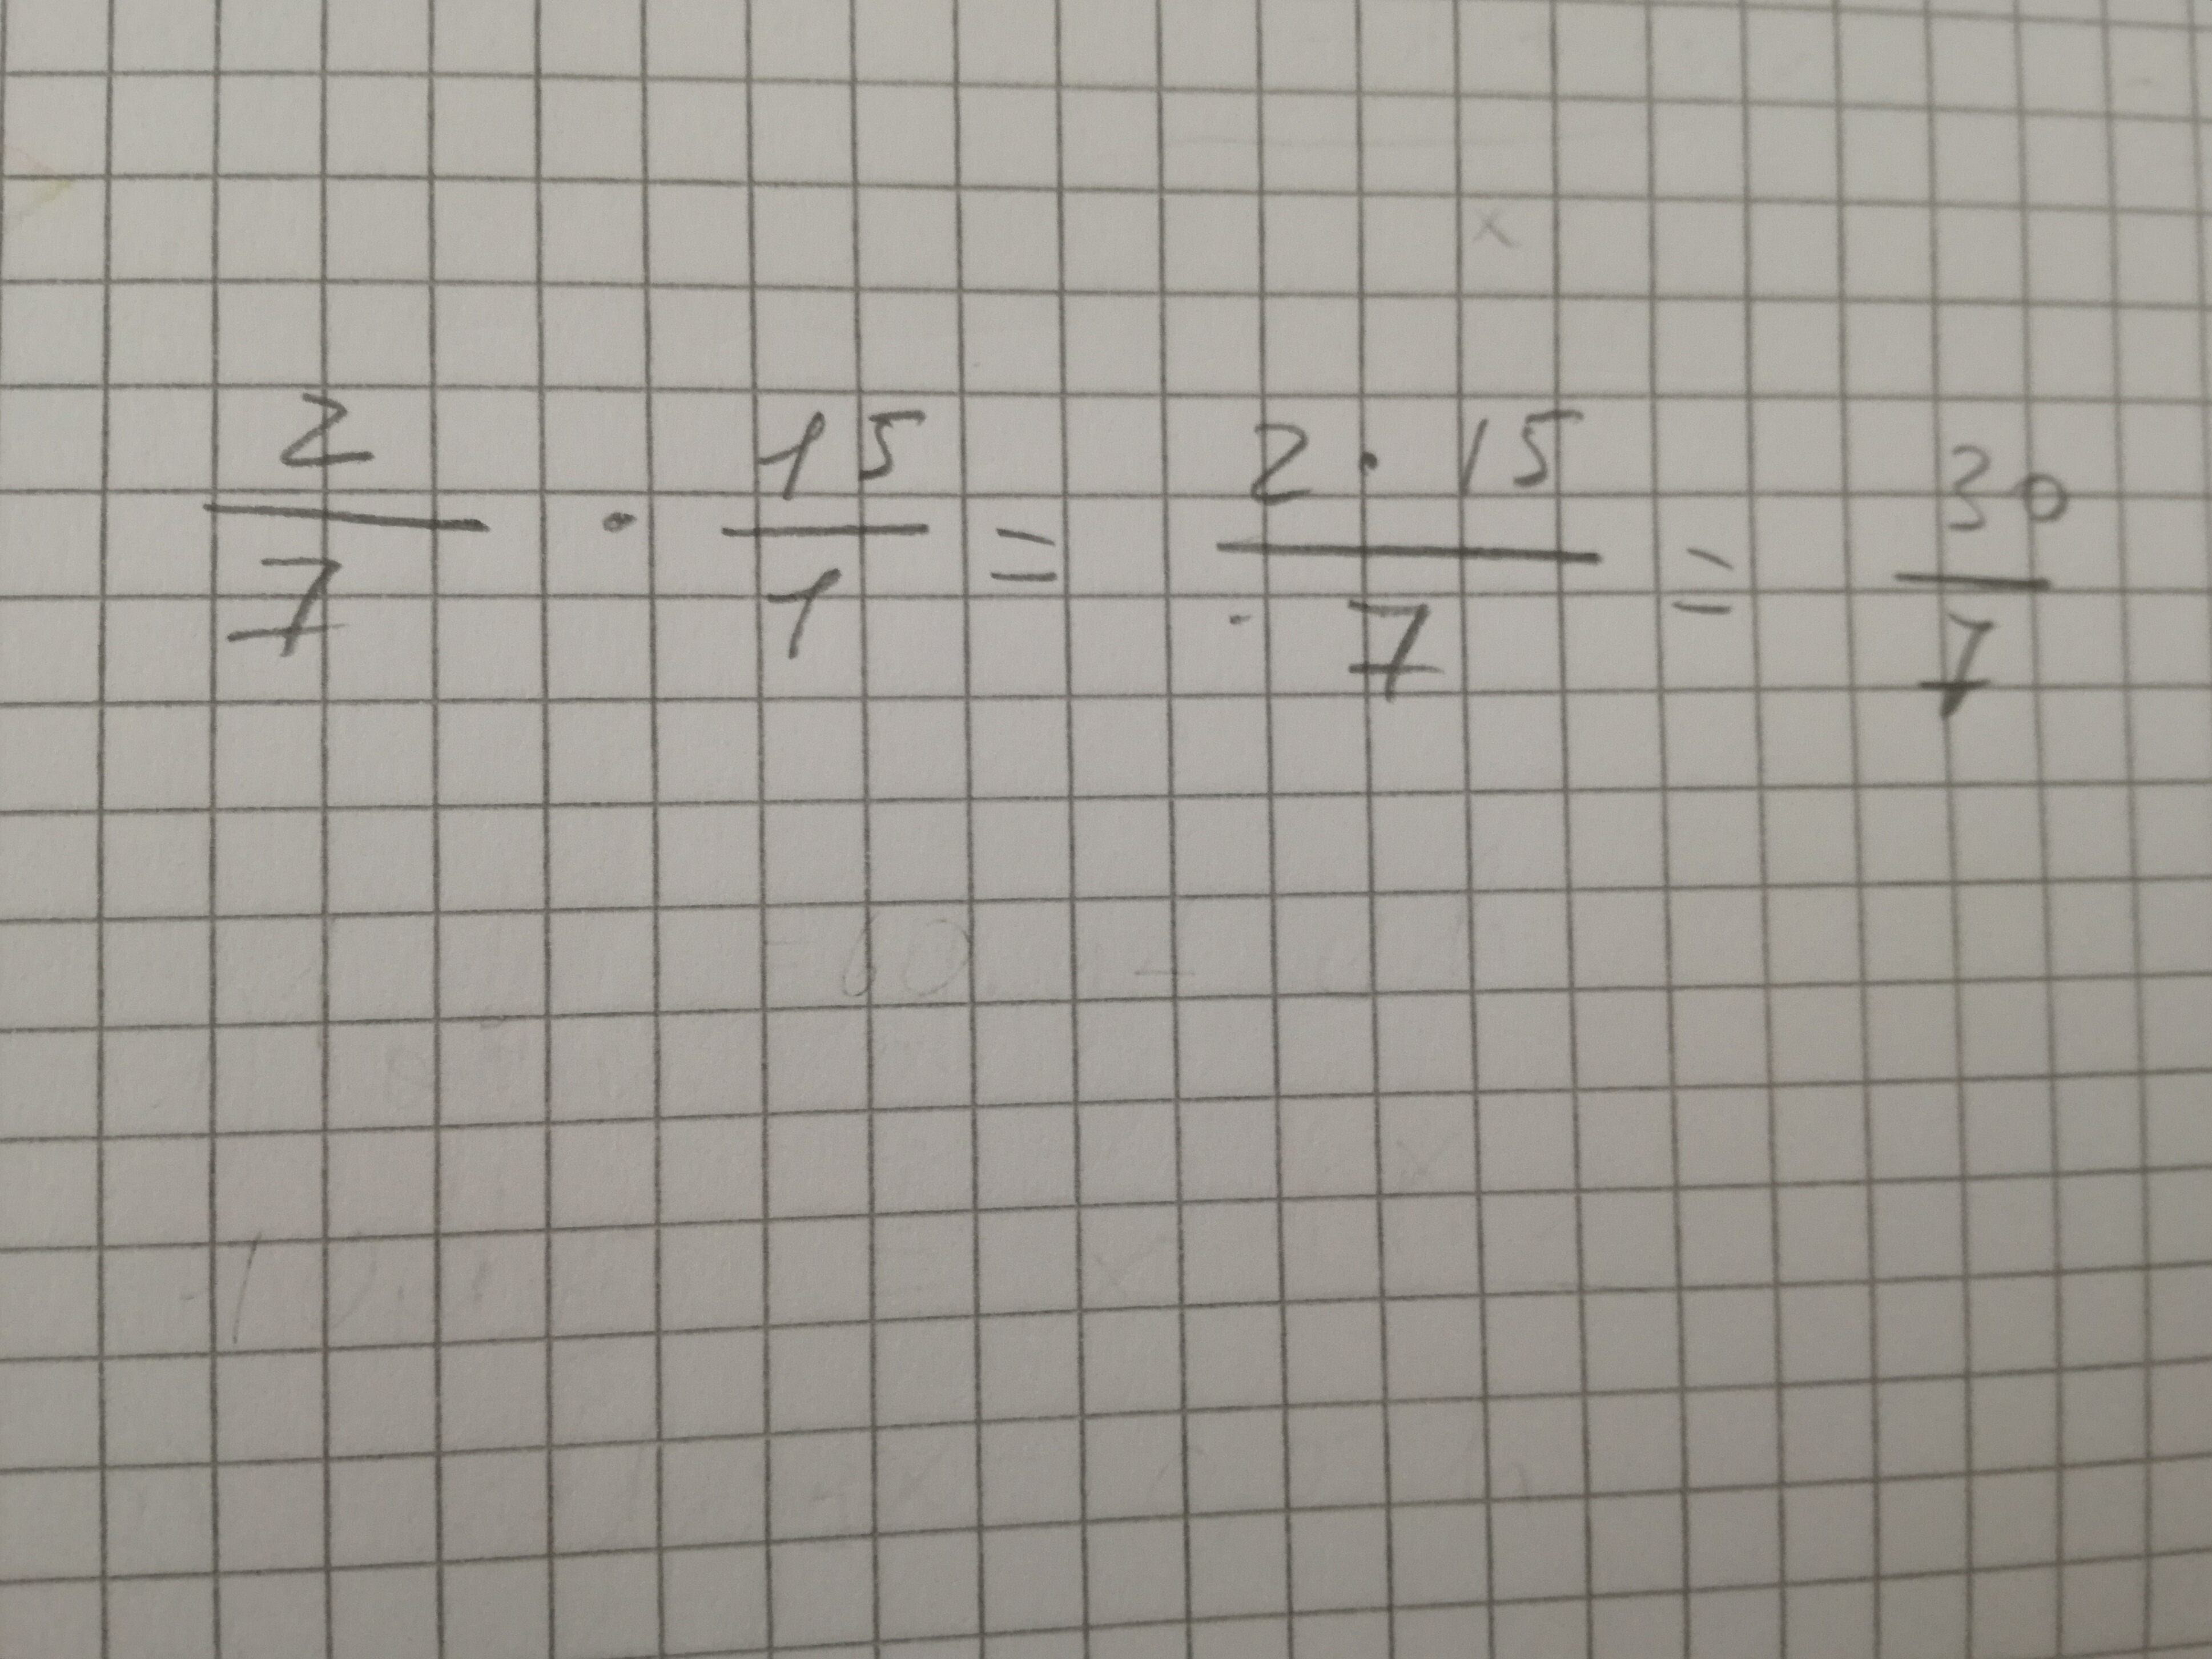 2/7 · 15/1 = 2 · 15/7 = 30/7